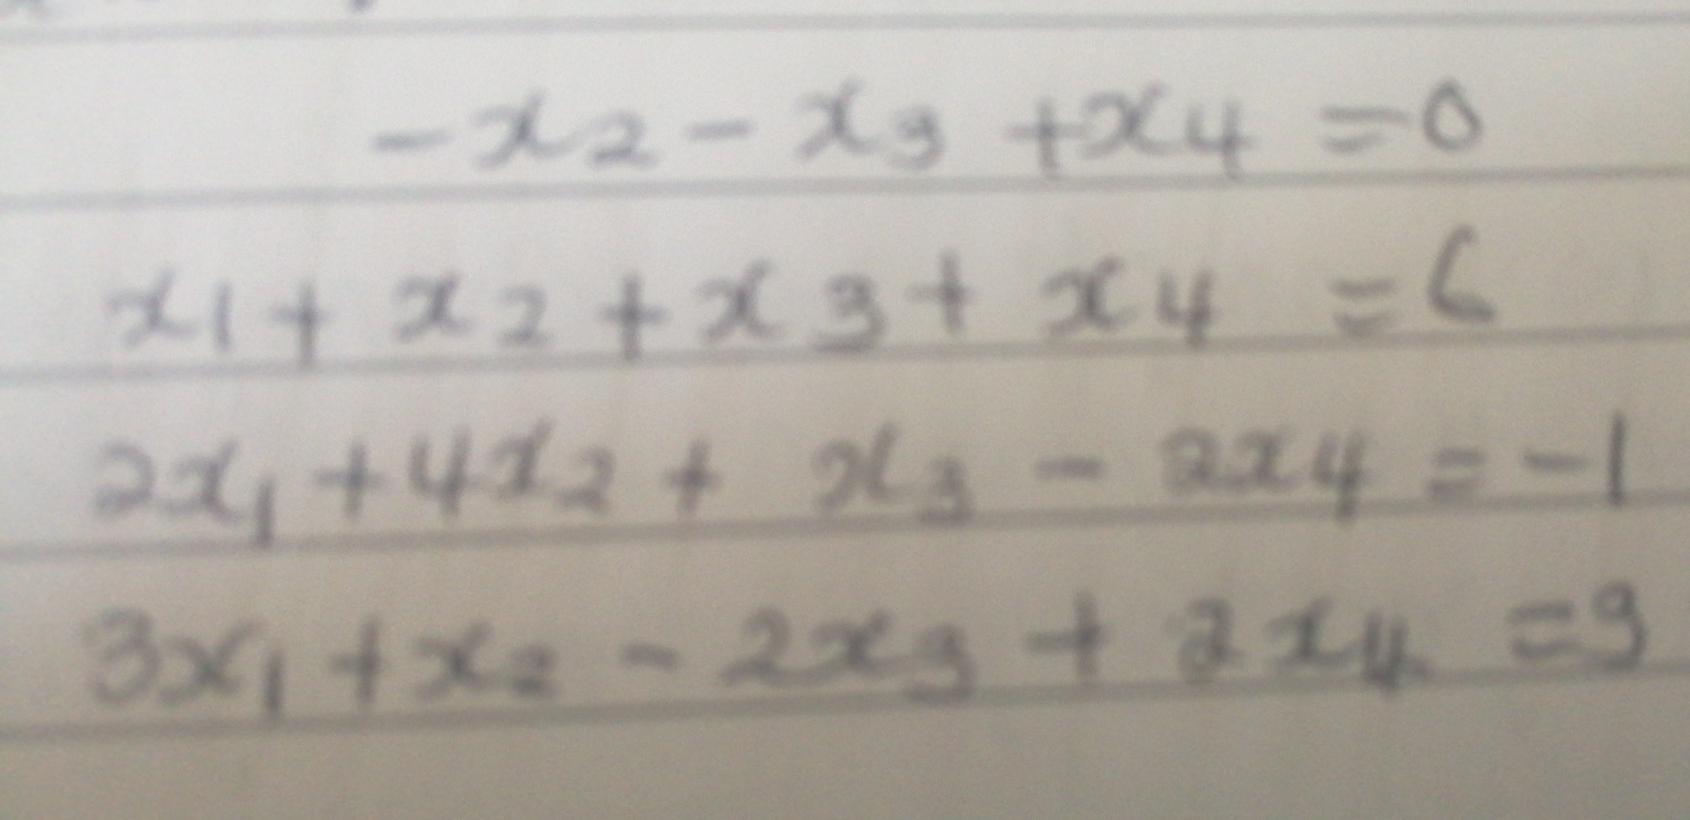 -x2 - x3 + x4 = 0
x1 + x2 + x3 + x4 = 6
2x1 + 4x2 + x3 - 2x4 = -1
3x1 + x2 - 2x3 + 2x4 = 9